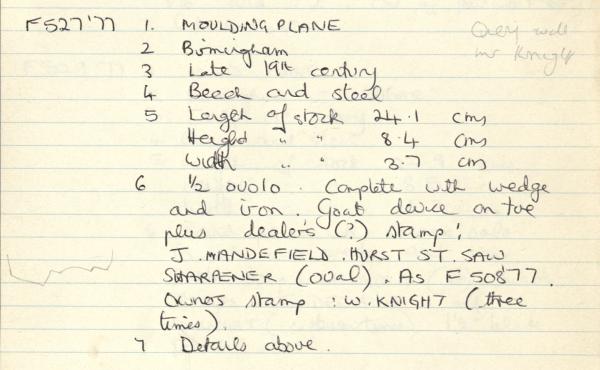 F527'77 1. MOULDING PLANE
Query well
Mr Knight
2 Birmingham
3 Late 19th century
4 Beech and steel
5 Length of stock 24.1 cms
Height " " 8.4 cms
Width " " 3.7 cms
6 1/2 ovolo. Complete with wedge
and iron. Goat device on toe
plus dealer's (?) stamp:
J. MANDEFIELD. HURST ST. SAW
SHARPENER (oval). As F508'77.
Owners stamp: W. KNIGHT (three
times).
7 Details above.